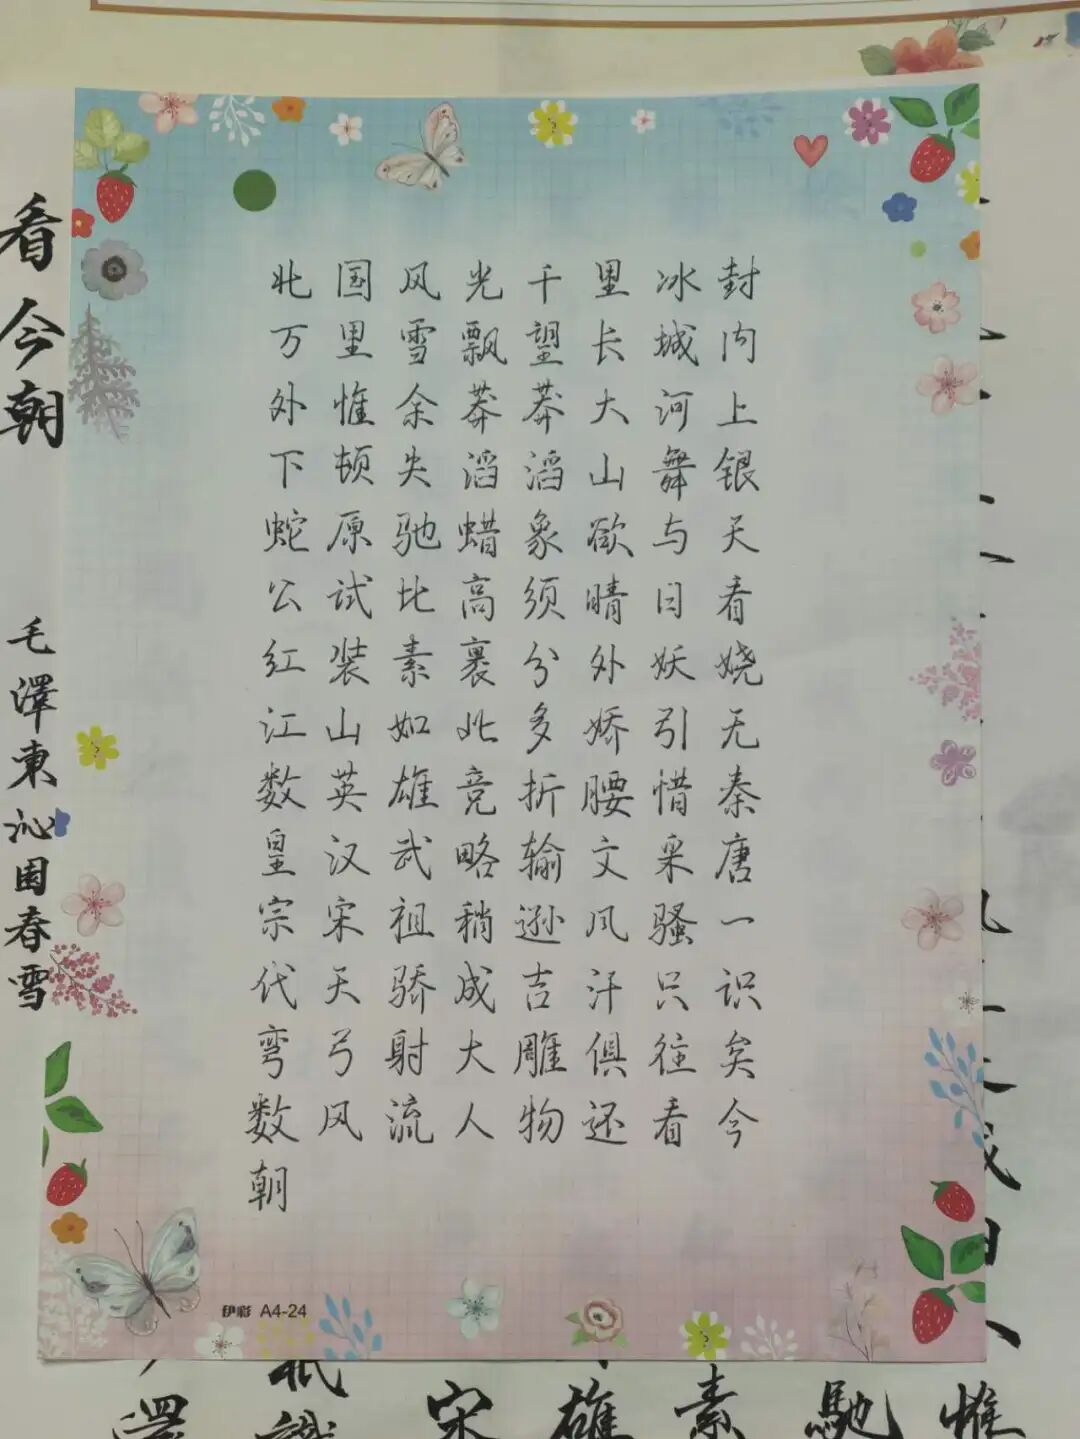 北国风光千里冰封
万里雪飘望长城内
外惟余莽莽大河上
下顿失滔滔山舞银
蛇原驰蜡象欲与天
公试比高须晴日看
红装素裹分外妖娆
江山如此多娇引无
数英雄竞折腰惜秦
皇汉武略输文采唐
宗宋祖稍逊风骚一
代天骄成吉汗只识
弯弓射大雕俱往矣
数风流人物还看今
朝
伊彩 A4-24
看今朝
毛澤東沁園春雪
宋雄素馳惟